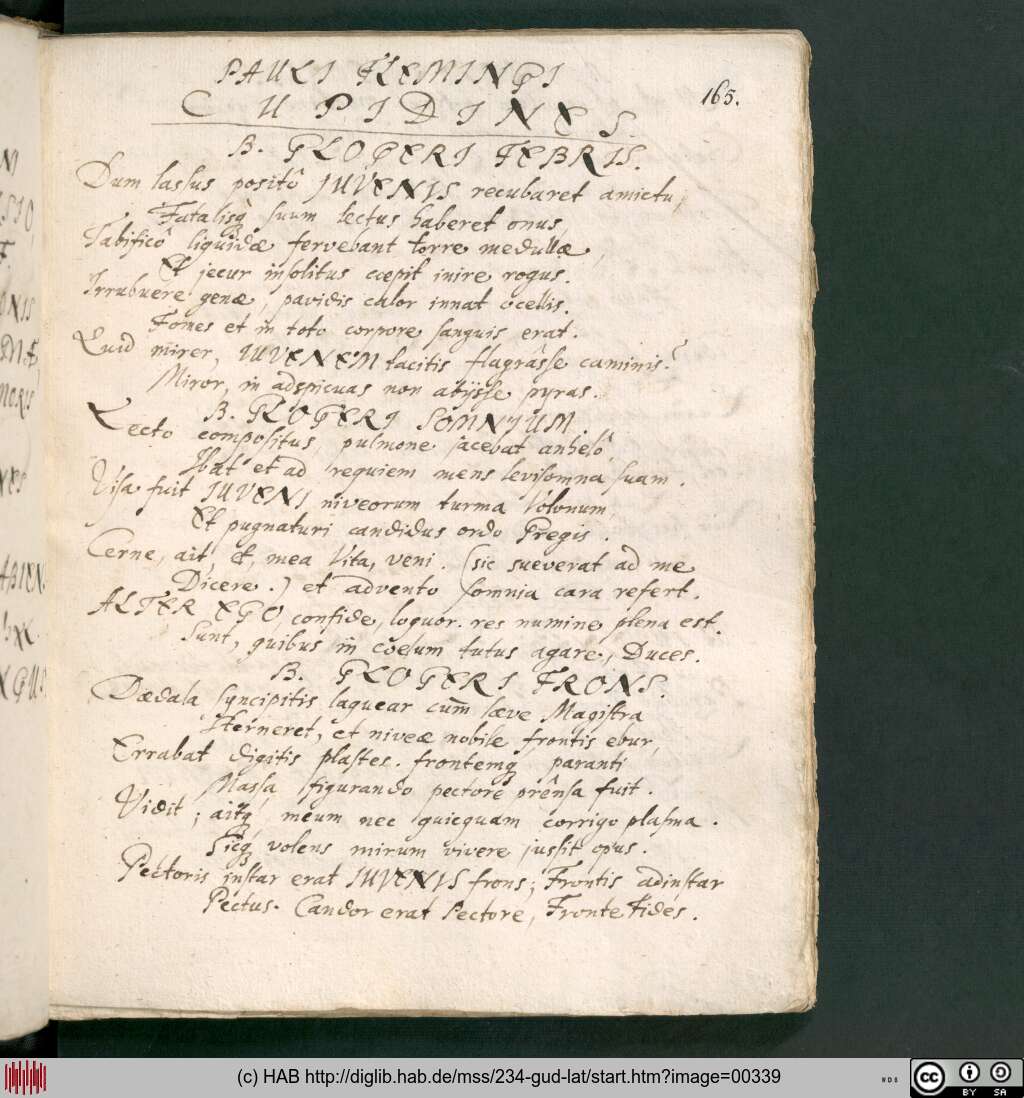 PAULI FLEMINGI
165.
CUPIDINES.
B. GLOGERI FEBRIS.
Dum lassus positô JUVENIS recubaret amictu,
Fatalisq́ suum lectus haberet onus,
Tabificô liquidæ fervebant torre medullæ,
Et jecur insolitus cœpit inire rogus.
Irrubuere genæ, pavidis calor innat ocellis.
Fomes et in toto corpore sanguis erat.
Quid mirer, IUVENEM tacitis flagrâsse caminis?
Miror, in adspicuas non abÿsse pyras.
B. GLOGERI SOMNIUM.
Lecto compositus pulmone jacebat anhelô,
Ibat et ad requiem mens levisomna suam.
Visa fuit IUVENI niveorum turma Volonum
Et pugnaturi candidus ordo Gregis.
Cerne, ait, et, mea Vita, veni. (sic sueverat ad me
Dicere.) et advento somnia cara refert.
ALTER EGO, confide, loquor. res numine plena est.
Sunt, quibus in cœlum tutus agare, Duces.
B. GLOGERI FRONS.
Dædala syncipitis laquear cum̄ sæve Magistra
Sterneret, et niveæ nobile frontis ebur,
Errabat digitis plastes. frontemq́ paranti
Massa figurando pectore prênsa fuit.
Vidit; aitq́, meum nec quicquam corrigo plasma.
Sicq́ volens mirum vivere jussit opus.
Pectoris instar erat IUVENIS frons; Frontis adinstar
Pectus. Candor erat Pectore, Fronte Fides.
NI
SIO
F.
ONIS
(c) HAB http://diglib.hab.de/mss/234-gud-lat/start.htm?image=00339
cc BY SA